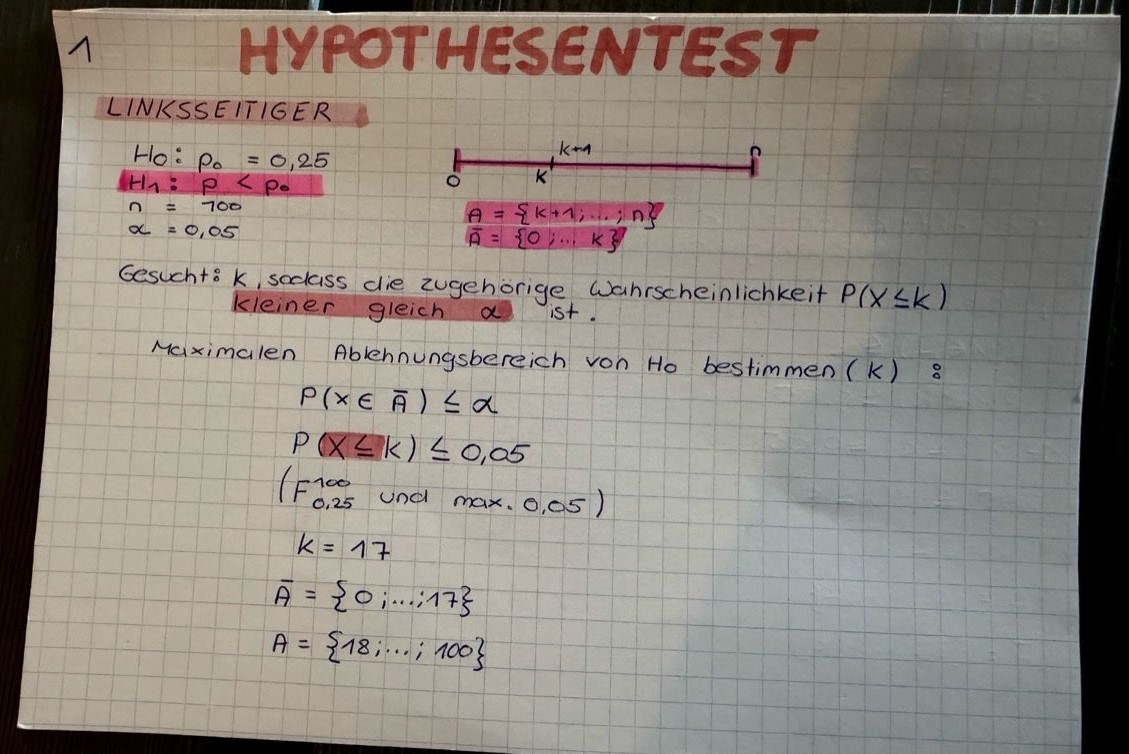 1
HYPOTHESENTEST
LINKSSEITIGER
H0: p0 = 0,25
H1: p < p0
n = 100
α = 0,05
k+1 n
0 k
A = {k+1;...; n}
Ā = {0;... k}
Gesucht: k, sodass die zugehörige Wahrscheinlichkeit P(X≤k)
kleiner gleich α ist.
Maximalen Ablehnungsbereich von H0 bestimmen (k):
P(x∈ Ā) ≤ α
P(X≤k) ≤ 0,05
(F¹⁰⁰₀,₂₅ und max. 0,05)
k = 17
Ā = {0;...;17}
A = {18;...; 100}